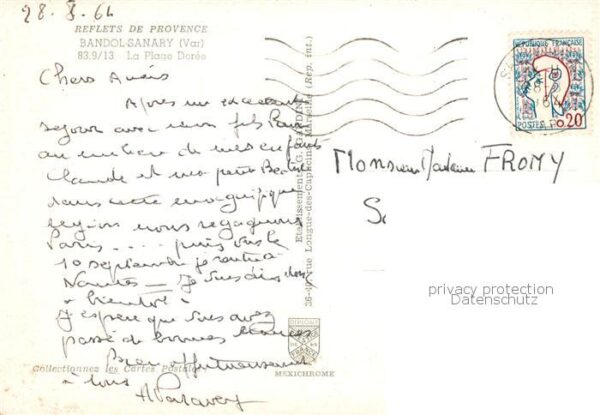 28.8.64
REFLETS DE PROVENCE
BANDOL-SANARY (Var)
83.9/13 La Plage Dorée
Chers Amis
Après un excellent
séjour avec mon fils
au milieu de mes enfants
Claude et ma petite Béatrice
dans cette magnifique
région nous regagnons
Paris .... puis vers le
10 septembre je rentre à
Nantes — Je vous dis donc
"à bientôt"
J'espère que vous avez
passé de bonnes vacances
Bien affectueusement
à tous
Collectionnez les Cartes Postales
Etablissements G. GANDINI
Rue Longue-des-Capucins, Marseille (Rep. int.)
MEXICHROME
REPUBLIQUE FRANÇAISE
POSTES
0.20
Monsieur Madame FROMY
S
privacy protection
Datenschutz